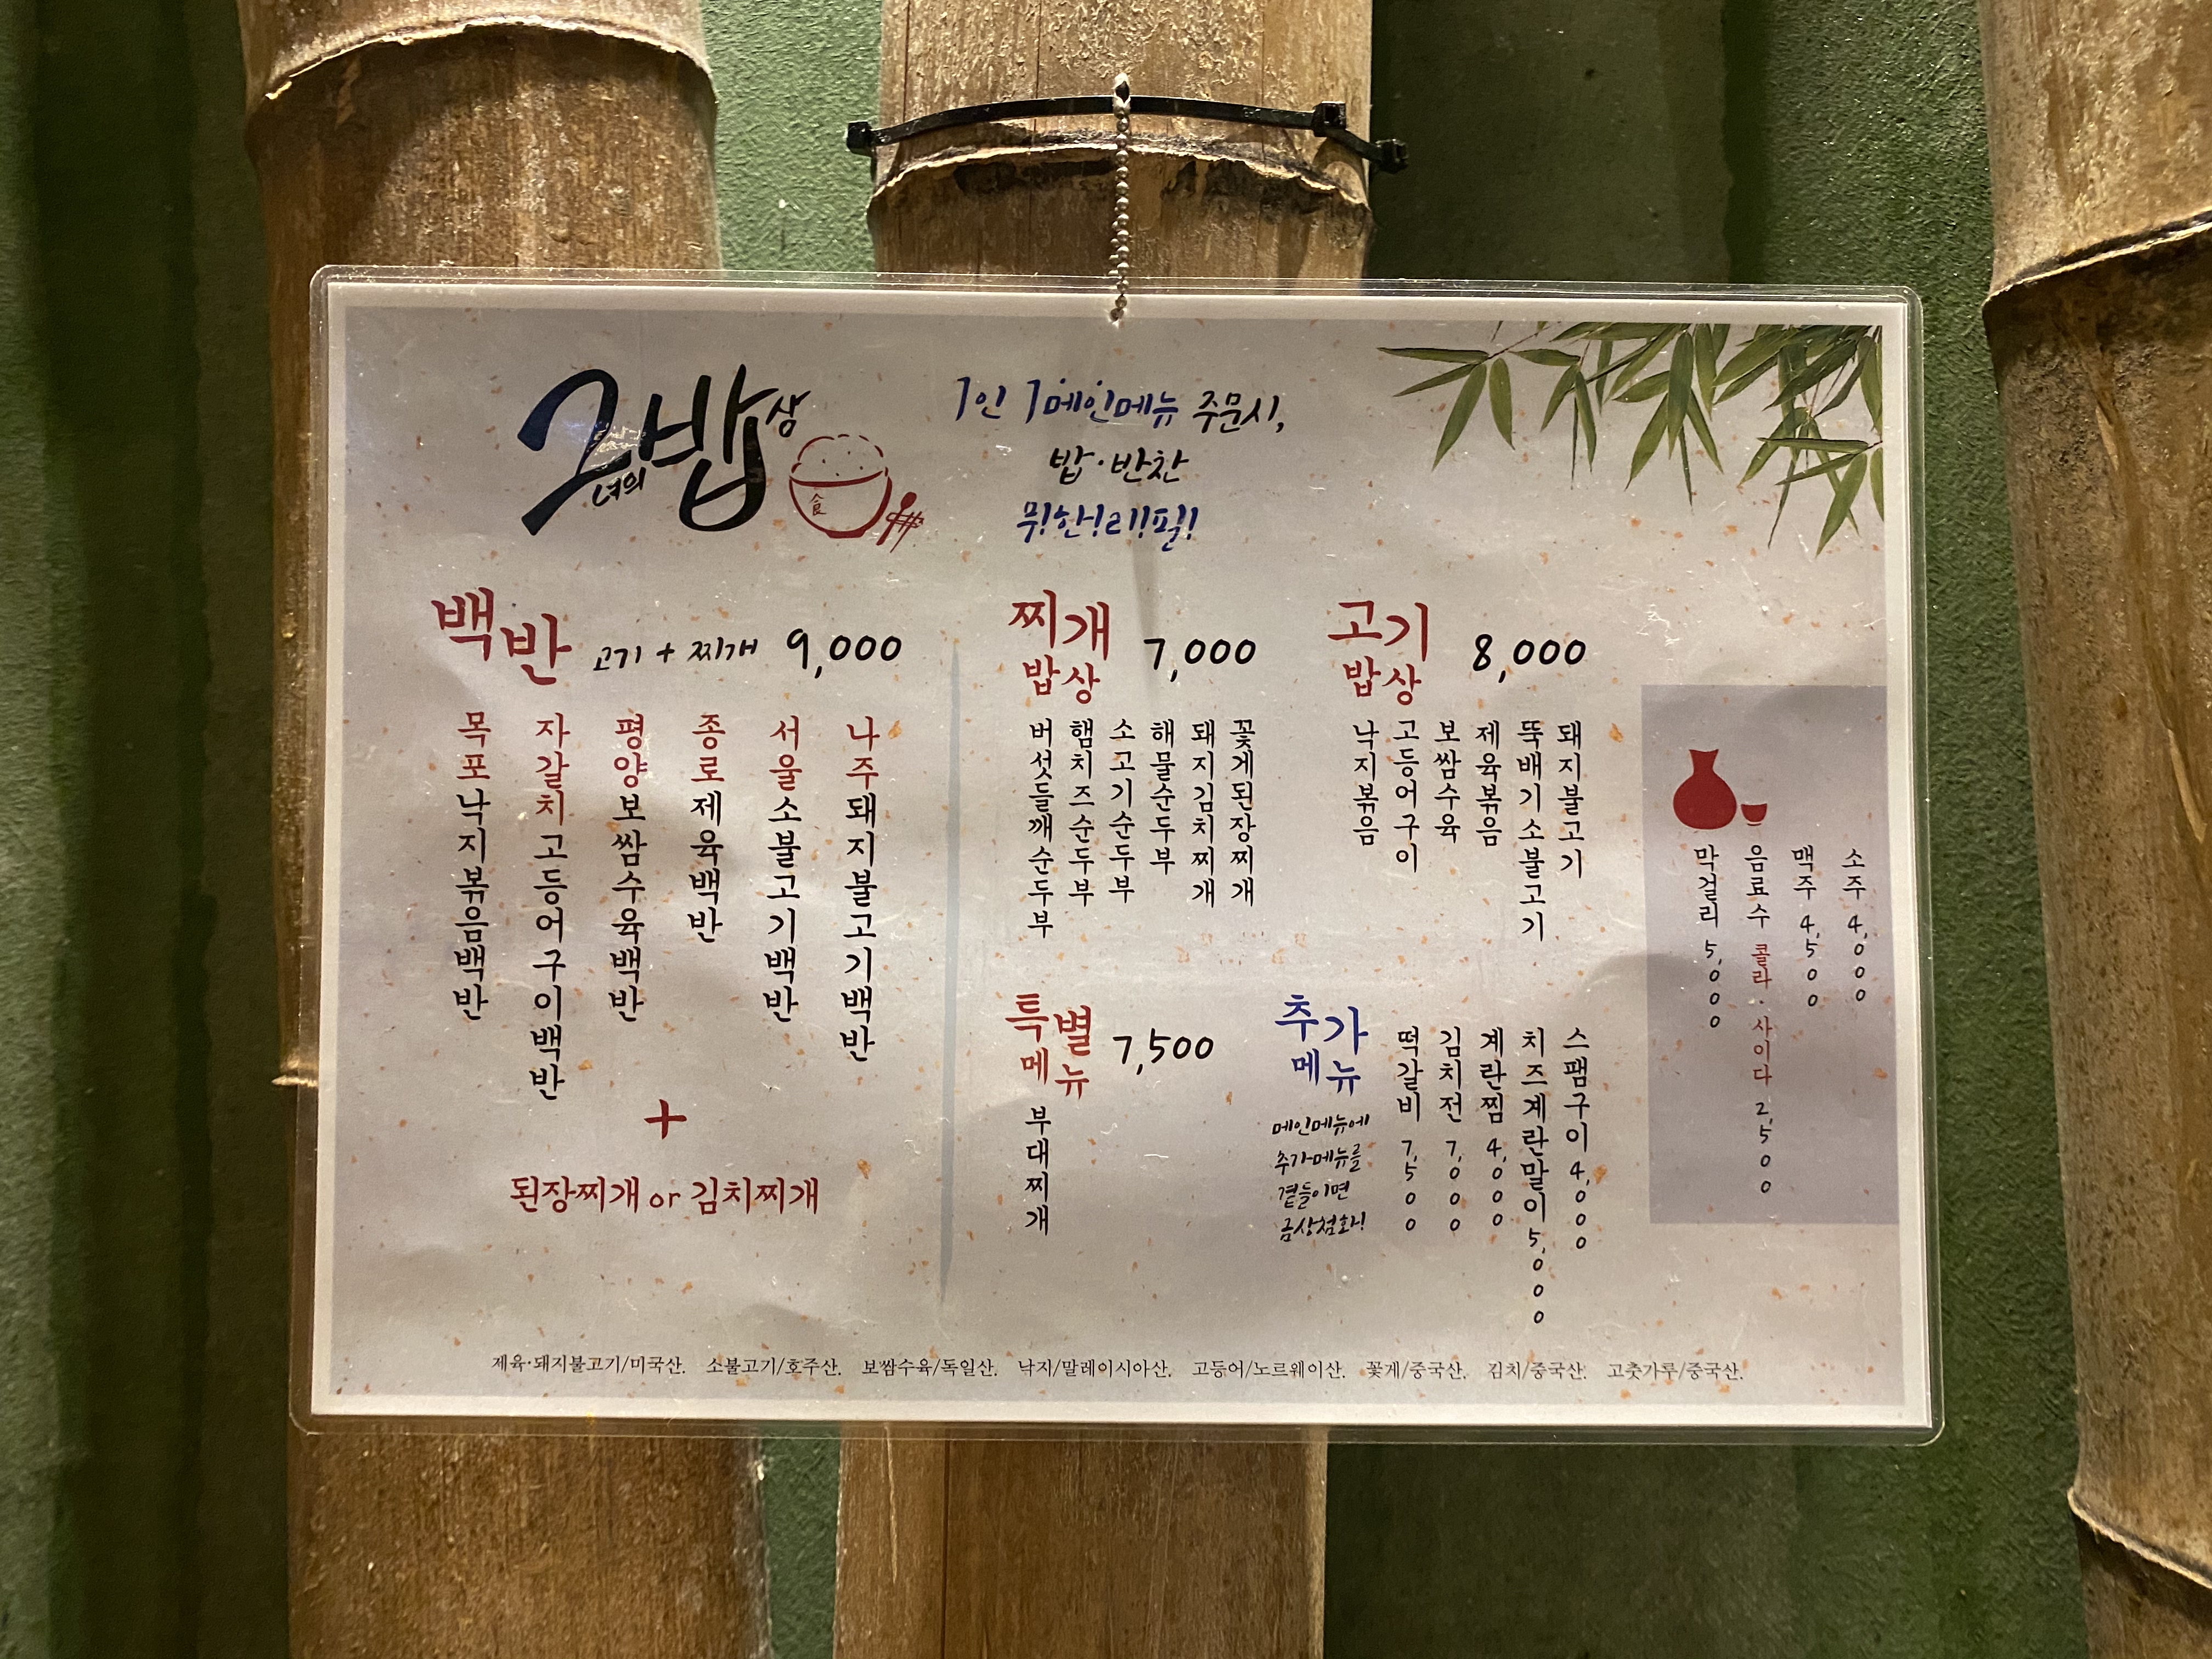 그녀의 밥상
食
1인 1메인메뉴 주문시,
밥·반찬
무!한!리!필!
백반 고기 + 찌개 9,000
목포낙지볶음백반
자갈치고등어구이백반
평양보쌈수육백반
종로제육백반
서울소불고기백반
나주돼지불고기백반
+
된장찌개 or 김치찌개
찌개밥상 7,000
버섯들깨순두부
햄치즈순두부
소고기순두부
해물순두부
돼지김치찌개
꽃게된장찌개
고기밥상 8,000
낙지볶음
고등어구이
보쌈수육
제육볶음
뚝배기소불고기
돼지불고기
특별메뉴 7,500
부대찌개
추가메뉴
메인메뉴에
추가메뉴를
곁들이면
금상첨화!
떡갈비 7,500
김치전 7,000
계란찜 4,000
치즈계란말이 5,000
스팸구이 4,000
막걸리 5,000
음료수 콜라·사이다 2,500
맥주 4,500
소주 4,000
제육·돼지불고기/미국산. 소불고기/호주산. 보쌈수육/독일산. 낙지/말레이시아산. 고등어/노르웨이산. 꽃게/중국산. 김치/중국산. 고춧가루/중국산.